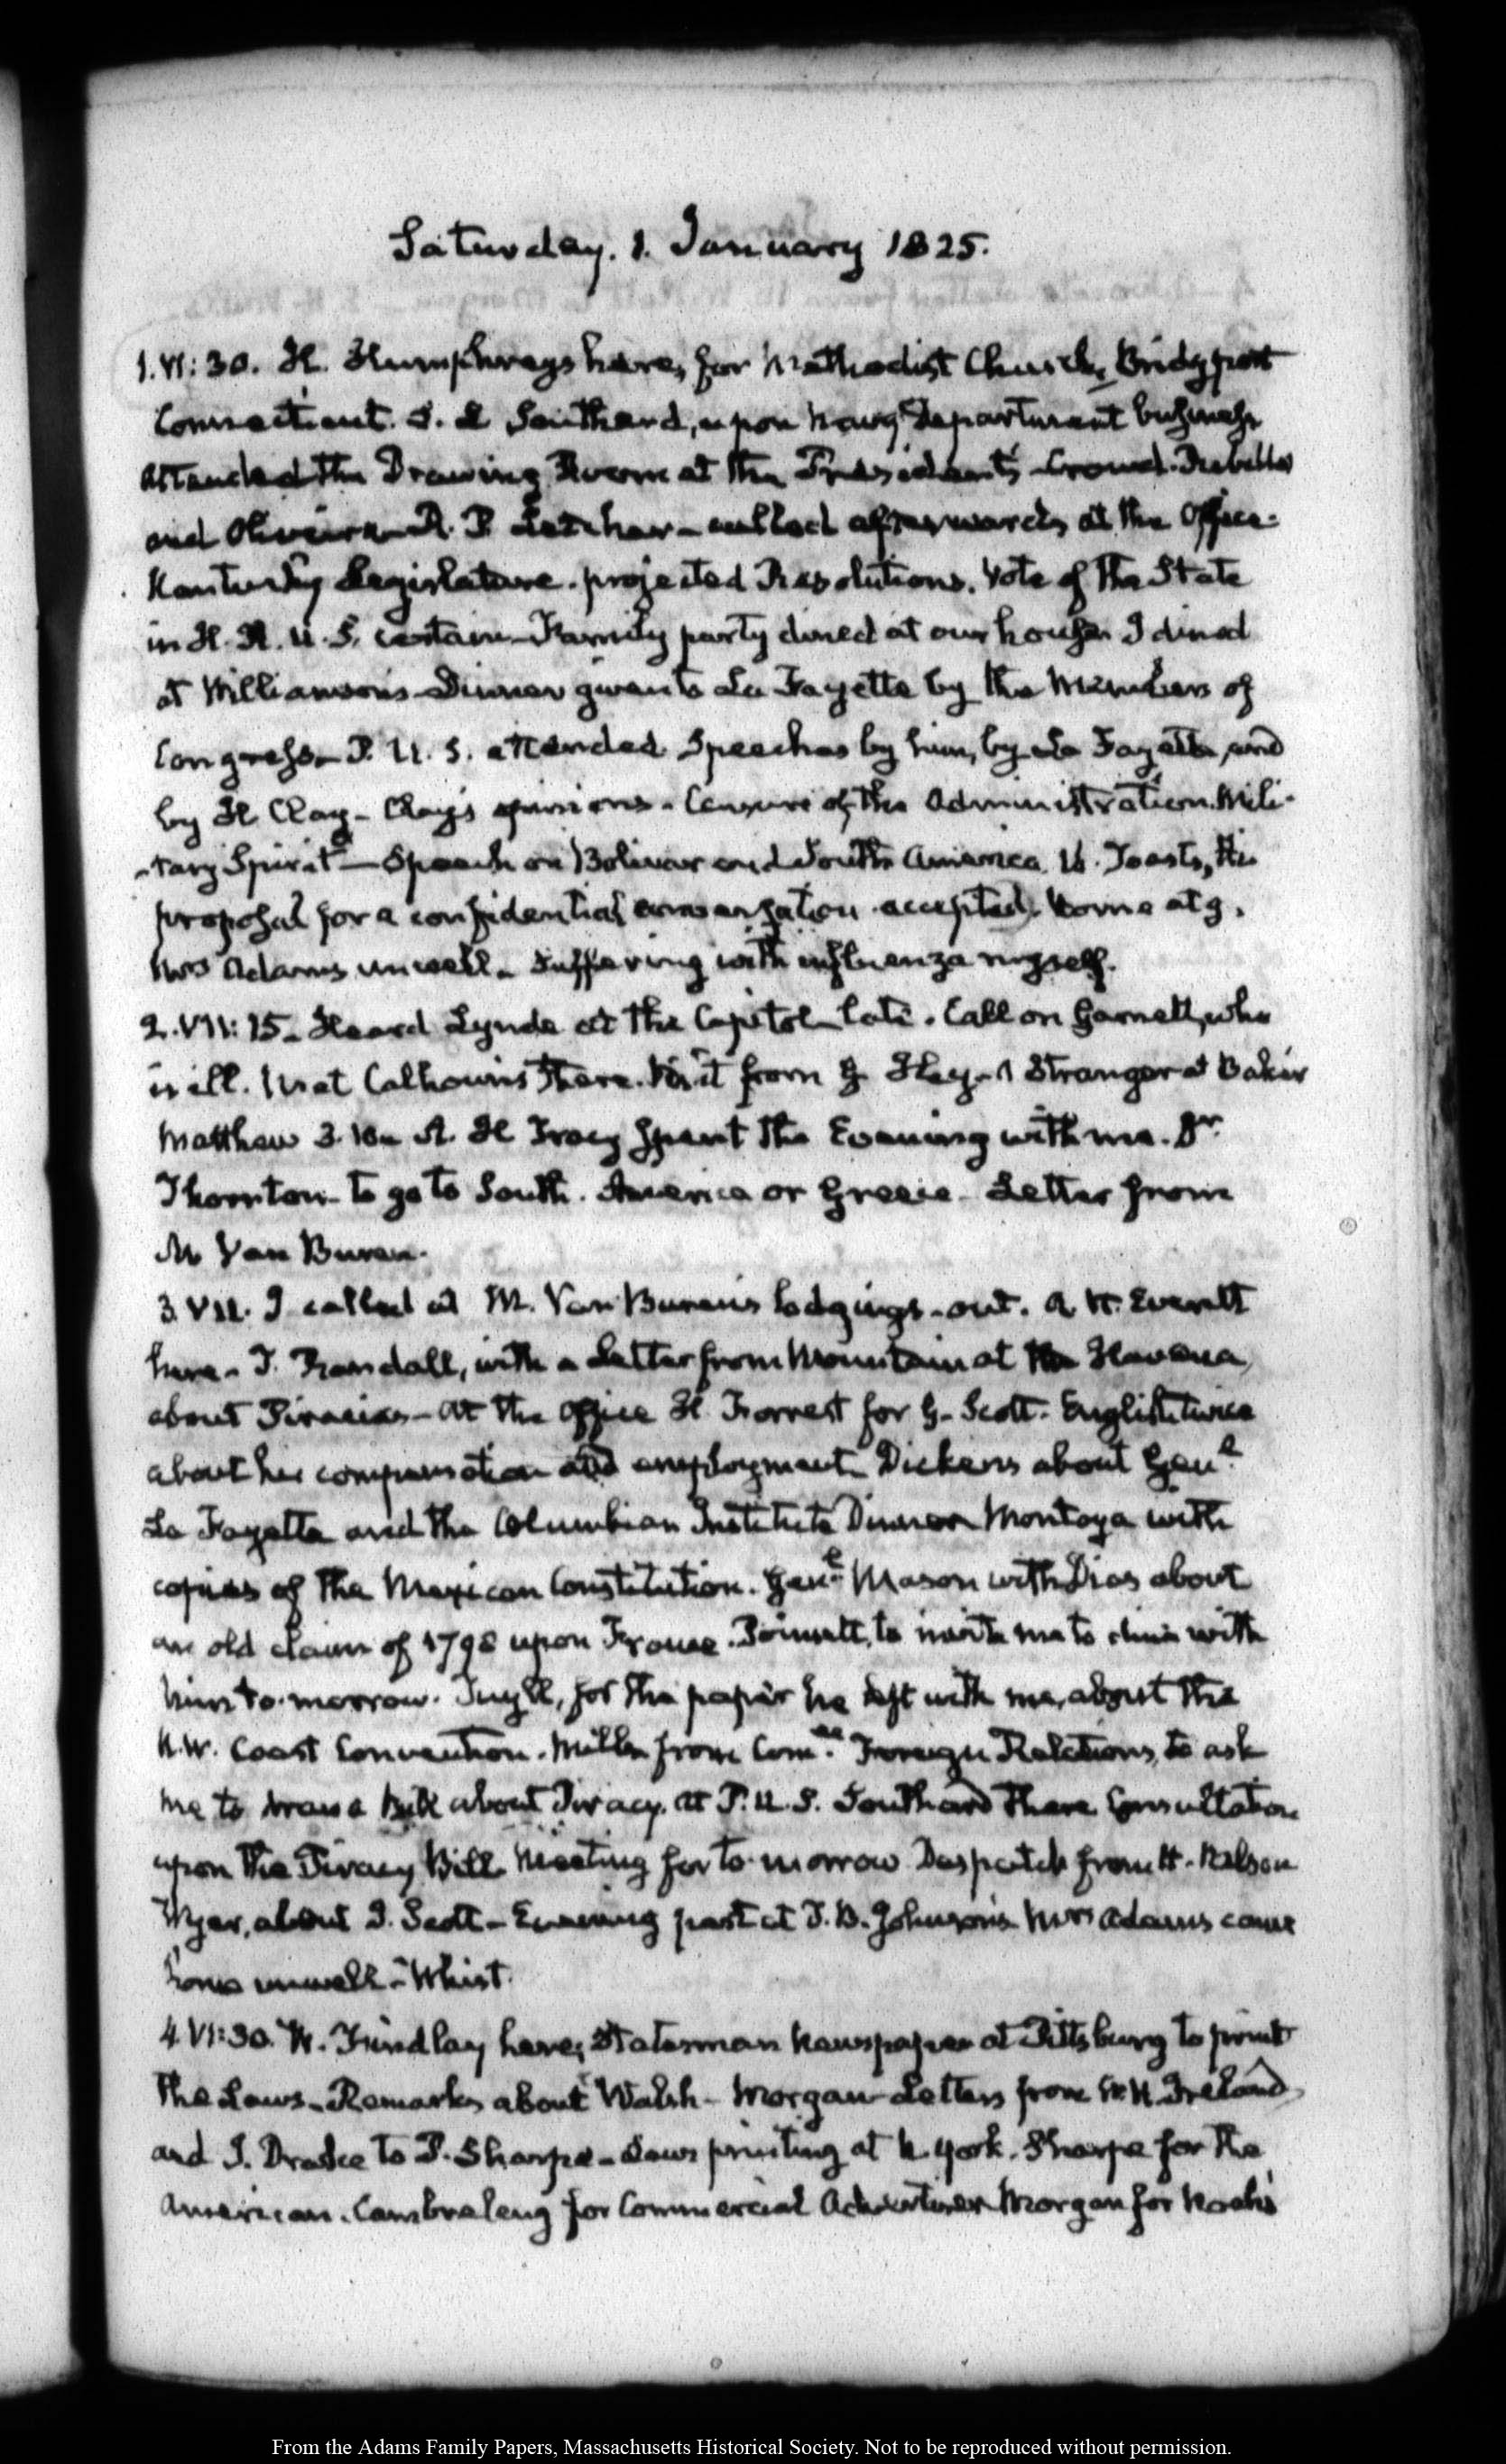 Saturday. 1. January 1825.
1. VI: 30. H. Humphreys here, for Methodist Church, Bridgport
Connecticut. S. L Southard, upon Navy Department business
Attended the Drawing Room at the President's Crowd. Rebello
and Oliveira R. P. Letcher called afterwards at the Office.
Kentucky Legislature. projected Resolutions. Vote of the State
in H. R. U. S. certain Family party dined at our house. I dined
at Williamson's Dinner given to La Fayette by the Members of
Congress. P. U. S. attended Speeches by him, by La Fayette, and
by H Clay- Clay's opinions. Censure of the Administration. Mili-
-tary Spirit Speech on Bolivar and South America. U. Toasts, His
proposal for a confidential conversation accepted. Home at 9.
Mrs Adams unwell. Suffering with influenza myself.
2. VII: 15. Heard Lynde at the Capitol late. Call on Garnett, who
is ill. Met Calhoun there. Visit from G Hay. A Stranger at Baker
Matthew 3. 10. A. H Tracy spent the Evening with me. Dr.
Thornton to go to South. America or Greece. Letter from
M Van Buren.
3. VII. I called at M. Van Buren's lodgings. out. A. H. Everett
here. T. Randall, with a Letter from Mountain at the Havana,
about Piracies. At the Office H. Forrest for G. Scott. English twice
about his compensation and employment Dickens about Genl.
La Fayette and the Columbian Institute Dinner Montoya with
copies of the Mexican Constitution. Genl. Mason with Dias about
an old claim of 1798 upon France. Poinsett, to invite me to dine with
him to-morrow. Tuyll, for the paper he left with me, about the
N.W. Coast Convention. Miller from Comee. Foreign Relations, to ask
me to draw a Bill about Piracy. At P. U. S. Southard there Consultation
upon the Piracy Bill Meeting for to-morrow Despatch from H. Nelson
Wyer, about J. Scott. Evening past at T. B. Johnson's Mrs Adams came
home unwell. Whist.
4. VI: 30. W. Findlay here; Statesman Newspaper at Pittsburg to print
the Laws. Remarks about Walsh. Morgan Letters from W. H Ireland,
and J. Drake to P. Sharpe. Laws printing at N. York. Sharpe for the
American. Cambreleng for Commercial Advertiser Morgan for Noah's
From the Adams Family Papers, Massachusetts Historical Society. Not to be reproduced without permission.